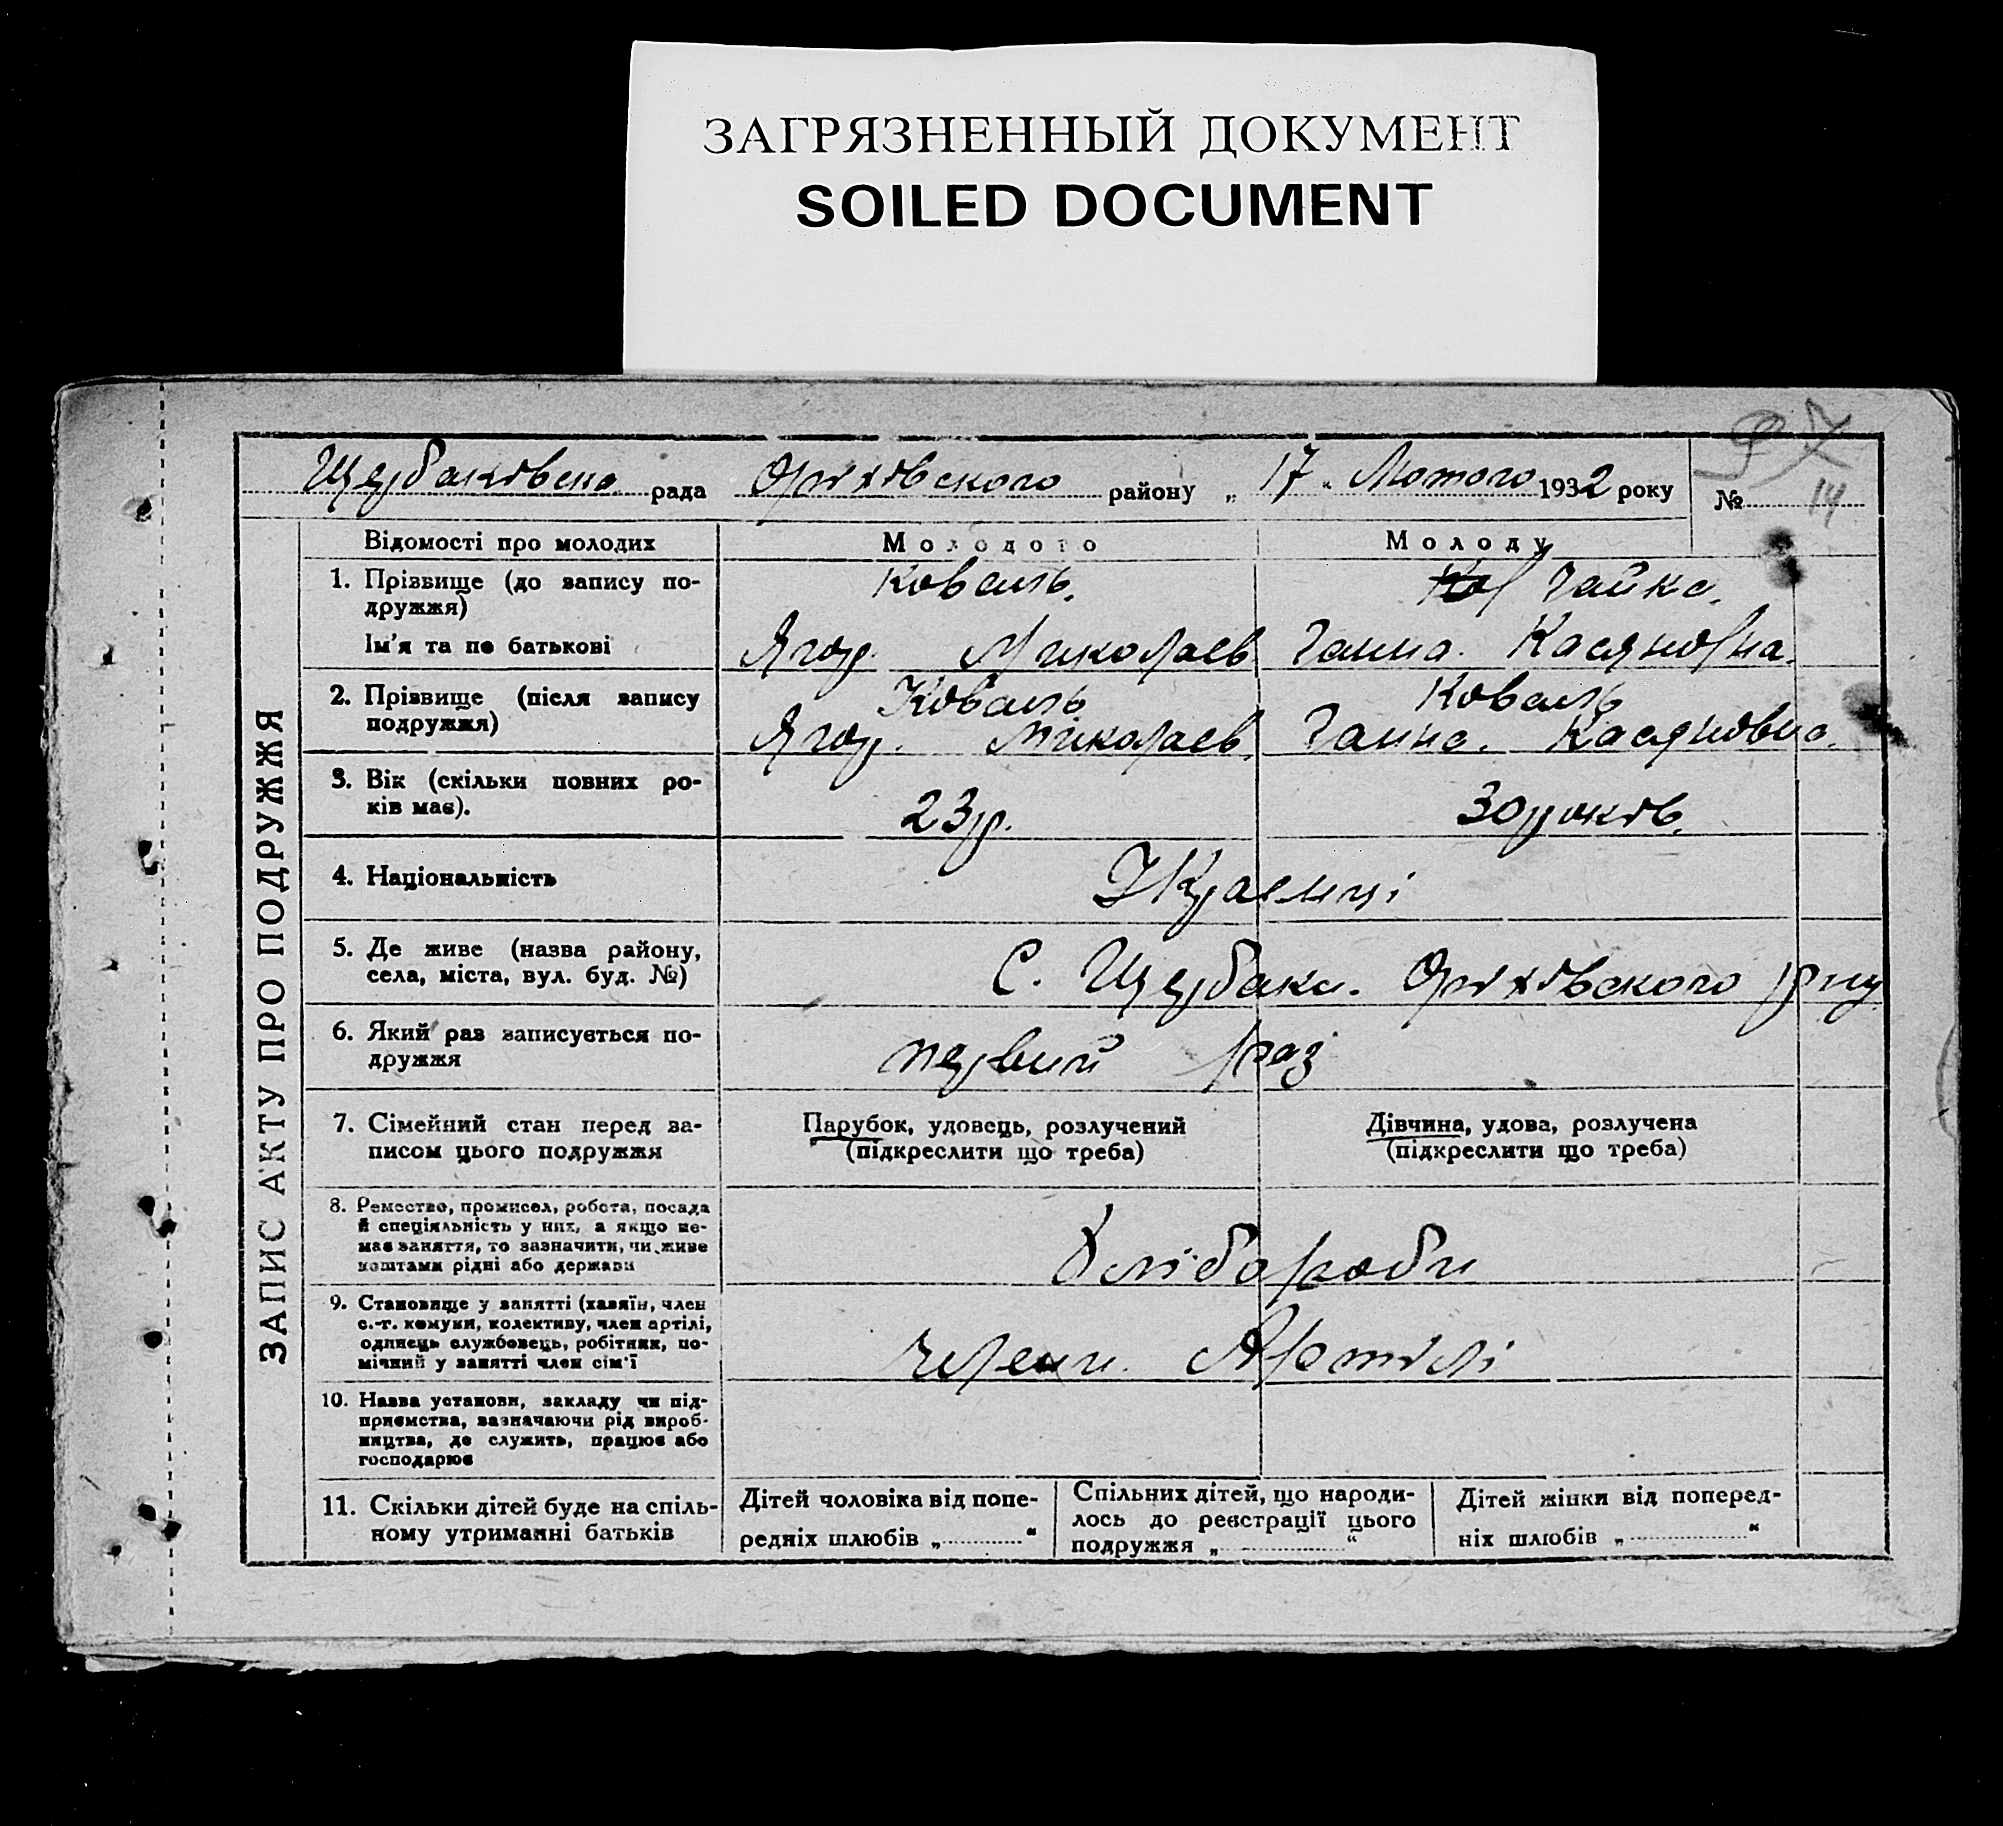 ЗАГРЯЗНЕННЫЙ ДОКУМЕНТ
SOILED DOCUMENT
Щербаківська рада Оріхівського району „ 17 " Лютого 1932 року № 14
ЗАПИС АКТУ ПРО ПОДРУЖЖЯ
Відомості про молодих Молодого Молоду
1. Прізвище (до запису по- Коваль. Чайка.
дружжя)
Ім'я та по батькові Ягор. Миколаєв Ганна. Касяновна.
2. Прізвище (після запису Коваль Коваль
подружжя) Ягор. Миколаєв. Ганна. Касяновна.
3. Вік (скільки повних ро- 23 р. 30 років.
ків має).
4. Національність Украенці
5. Де живе (назва району, С. Щербаки. Оріхівського рну
села, міста, вул. буд. №)
6. Який раз записується по- первий раз
дружжя
7. Сімейний стан перед за- Парубок, удовець, розлучений Дівчина, удова, розлучена
писом цього подружжя (підкреслити що треба) (підкреслити що треба)
8. Ремество, промисел, робота, посада
й спеціяльність у них, а якщо не-
має заняття, то зазначити, чи живе Хлібороби
коштами рідні або держави
9. Становище у занятті (хазяїн, член
с.-г. комуни, колективу, член артілі,
одинець службовець, робітник, по- члени. Артілі
мічний у занятті член сім'ї
10. Назва установи, закладу чи під-
приємства, зазначаючи рід вироб-
ництва, де служить, працює або
господарює
11. Скільки дітей буде на спіль- Дітей чоловіка від попе- Спільних дітей, що народи- Дітей жінки від поперед-
ному утриманні батьків редніх шлюбів „ " лось до реєстрації цього ніх шлюбів „ "
подружжя „ "